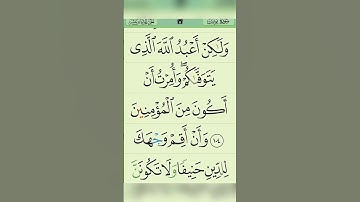 وَلَٰكِنْ أَعْبُدُ ٱللَّهَ ٱلَّذِى
يَتَوَفَّىٰكُمْ ۖ وَأُمِرْتُ أَنْ
أَكُونَ مِنَ ٱلْمُؤْمِنِينَ
١٠٤ وَأَنْ أَقِمْ وَجْهَكَ
لِلدِّينِ حَنِيفًا وَلَا تَكُونَنَّ